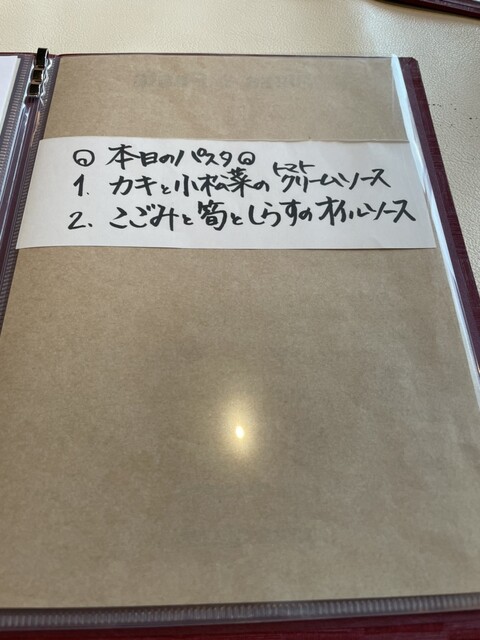 本日のパスタ
1. カキと小松菜のトマトクリームソース
2. こごみと筍としらすのオイルソース